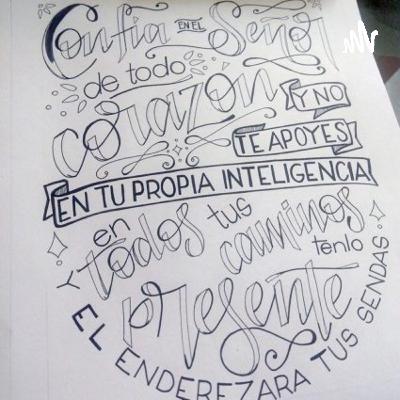 Confia EN EL Señor
de todo
corazon Y NO
TE APOYES
EN TU PROPIA INTELIGENCIA
en todos tus
caminos tenlo
presente
Y EL ENDEREZARA TUS SENDAS